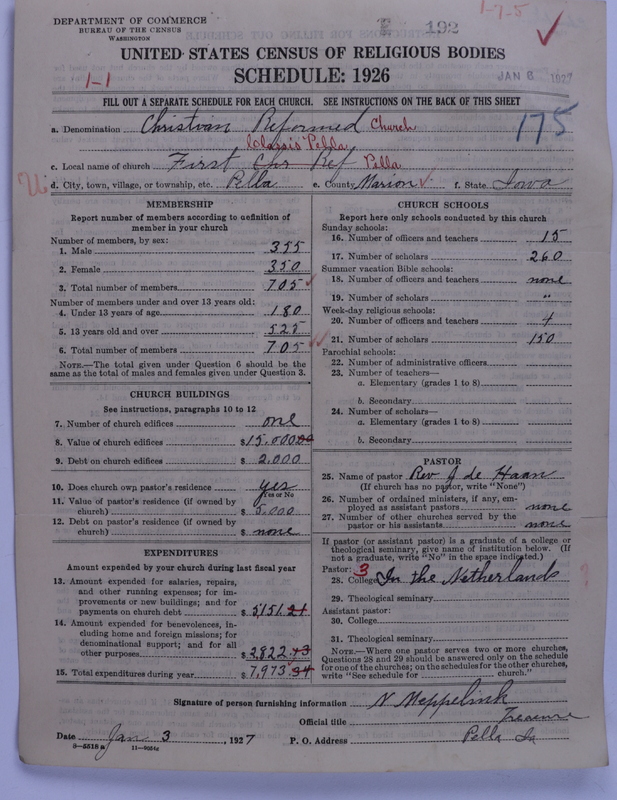 DEPARTMENT OF COMMERCE
BUREAU OF THE CENSUS
WASHINGTON
192
1-7-5
UNITED STATES CENSUS OF RELIGIOUS BODIES
SCHEDULE: 1926
1-1
JAN 6 1927
FILL OUT A SEPARATE SCHEDULE FOR EACH CHURCH. SEE INSTRUCTIONS ON THE BACK OF THIS SHEET
175
a. Denomination Christian Reformed Church
Classis Pella
c. Local name of church First Chr Ref Pella
d. City, town, village, or township, etc. Pella e. County Marion f. State Iowa
MEMBERSHIP
Report number of members according to definition of
member in your church
Number of members, by sex:
1. Male 355
2. Female 350
3. Total number of members 705
Number of members under and over 13 years old:
4. Under 13 years of age 180
5. 13 years old and over 525
6. Total number of members 705
NOTE.—The total given under Question 6 should be
same as the total of males and females given under Question 3.
CHURCH BUILDINGS
See instructions, paragraphs 10 to 12
7. Number of church edifices one
8. Value of church edifices $15,000.00
9. Debt on church edifices $2,000
10. Does church own pastor's residence yes
Yes or No
11. Value of pastor's residence (if owned by
church) $5,000
12. Debt on pastor's residence (if owned by
church) $none
EXPENDITURES
Amount expended by your church during last fiscal year
13. Amount expended for salaries, repairs,
and other running expenses; for im-
provements or new buildings; and for
payments on church debt $5151.21
14. Amount expended for benevolences, in-
cluding home and foreign missions; for
denominational support; and for all
other purposes $2,822.13
15. Total expenditures during year $7,973.34
CHURCH SCHOOLS
Report here only schools conducted by this church
Sunday schools:
16. Number of officers and teachers 15
17. Number of scholars 260
Summer vacation Bible schools:
18. Number of officers and teachers none
19. Number of scholars "
Week-day religious schools:
20. Number of officers and teachers 4
21. Number of scholars 150
Parochial schools:
22. Number of administrative officers
23. Number of teachers—
a. Elementary (grades 1 to 8)
b. Secondary
24. Number of scholars—
a. Elementary (grades 1 to 8)
b. Secondary
PASTOR
25. Name of pastor Rev J de Haan
(If church has no pastor, write "None")
26. Number of ordained ministers, if any, em-
ployed as assistant pastors none
27. Number of other churches served by the
pastor or his assistants none
If pastor (or assistant pastor) is a graduate of a college or
theological seminary, give name of institution below. (If
not a graduate, write "No" in the space indicated.)
Pastor: 3
28. College In the Netherlands ?
29. Theological seminary
Assistant pastor:
30. College
31. Theological seminary
NOTE.—Where one pastor serves two or more churches,
Questions 28 and 29 should be answered only on the schedule
for one of the churches; on the schedules for the other churches,
write "See schedule for church."
Signature of person furnishing information N Meppelink
Official title
Date Jan 3, 1927 P. O. Address Pella Ia
8-5518 a 11-9034a